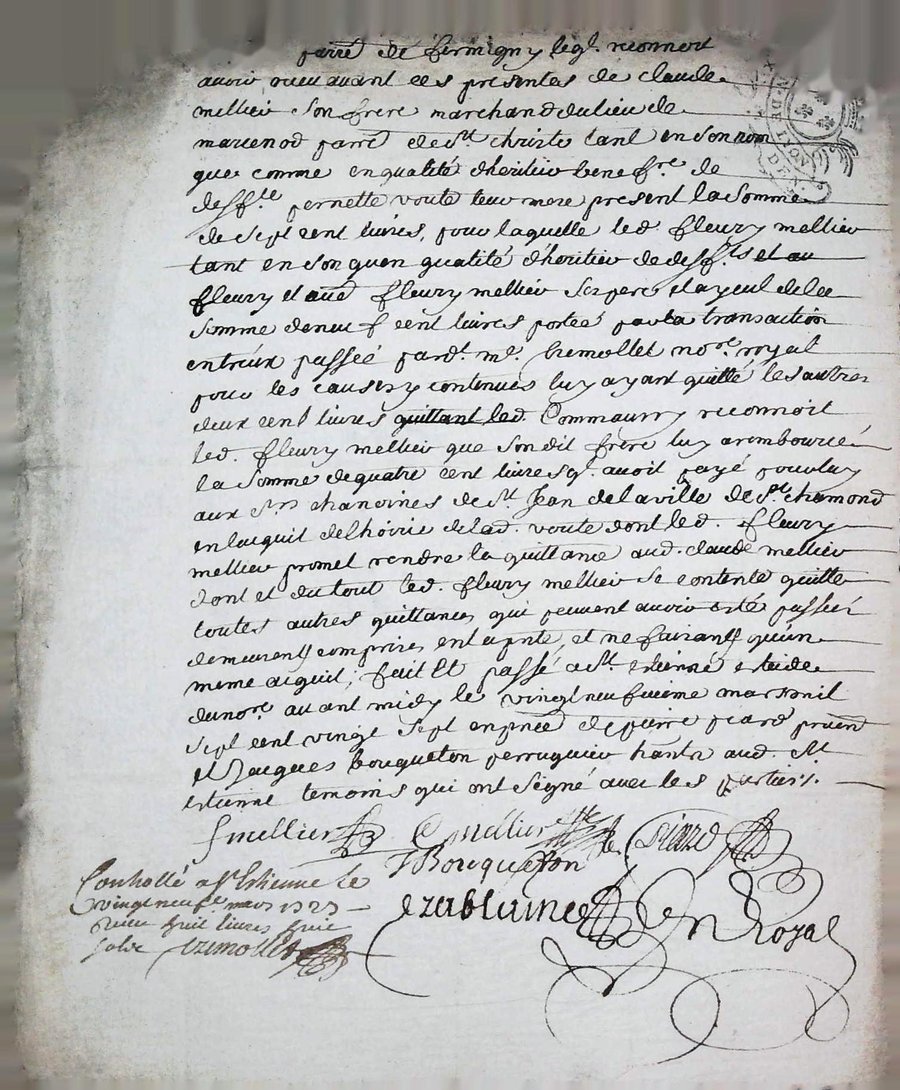 parre de fermigny legt. reconnoit
avoir receu avant ces presentes de claude
mellier son frere marchand du lieu de
marcenod parre. de st. christo tant en son nom
que comme en qualité d'heritier benefre. de
deffte. pernette voute leur mere present la somme
de sept cent livres, pour laquelle led. fleury mellier
tant en son qu'en qualité d'heritier de deffts et au
fleury et aud fleury mellier ses pere et ayeul de la
somme de neuf cent livres portée par la transaction
entreux passée pardt. me. tremollet nore. royal
pour les causes y contenues luy ayant quitté les autres
deux cent livres quittant led. Commaurry reconnoit
led. fleury mellier que son dit frère luy a rembourcé
la somme de quatre cent livres ql. avoit payé pour luy
aux srs chanoines de st. Jean de la ville de st. chamond
en lacquit de l'hoirie de lad. voute dont led. fleury
mellier promet rendre la quittance aud. claude mellier
dont et du tout led. fleury mellier se contente quitte
toutes autres quittances qui peuvent avoir esté passées
demeurent comprises en la pnte, et ne faisant qu'un
meme acquit, fait Et passé a st. estienne estude
du nore. avant midy le vingt neufvieme mars mil
sept cent vingt sept en pnce de pierre picard
et Jacques bouqueton perruquier hants aud. St.
estienne temoins qui ont signé avec les parties.
fmellier C mellier picard
J Bouqueton
Royal
Controllé a st Estienne le
vingt neufe mars 1727
Receu huit livres huit
sols tremollet